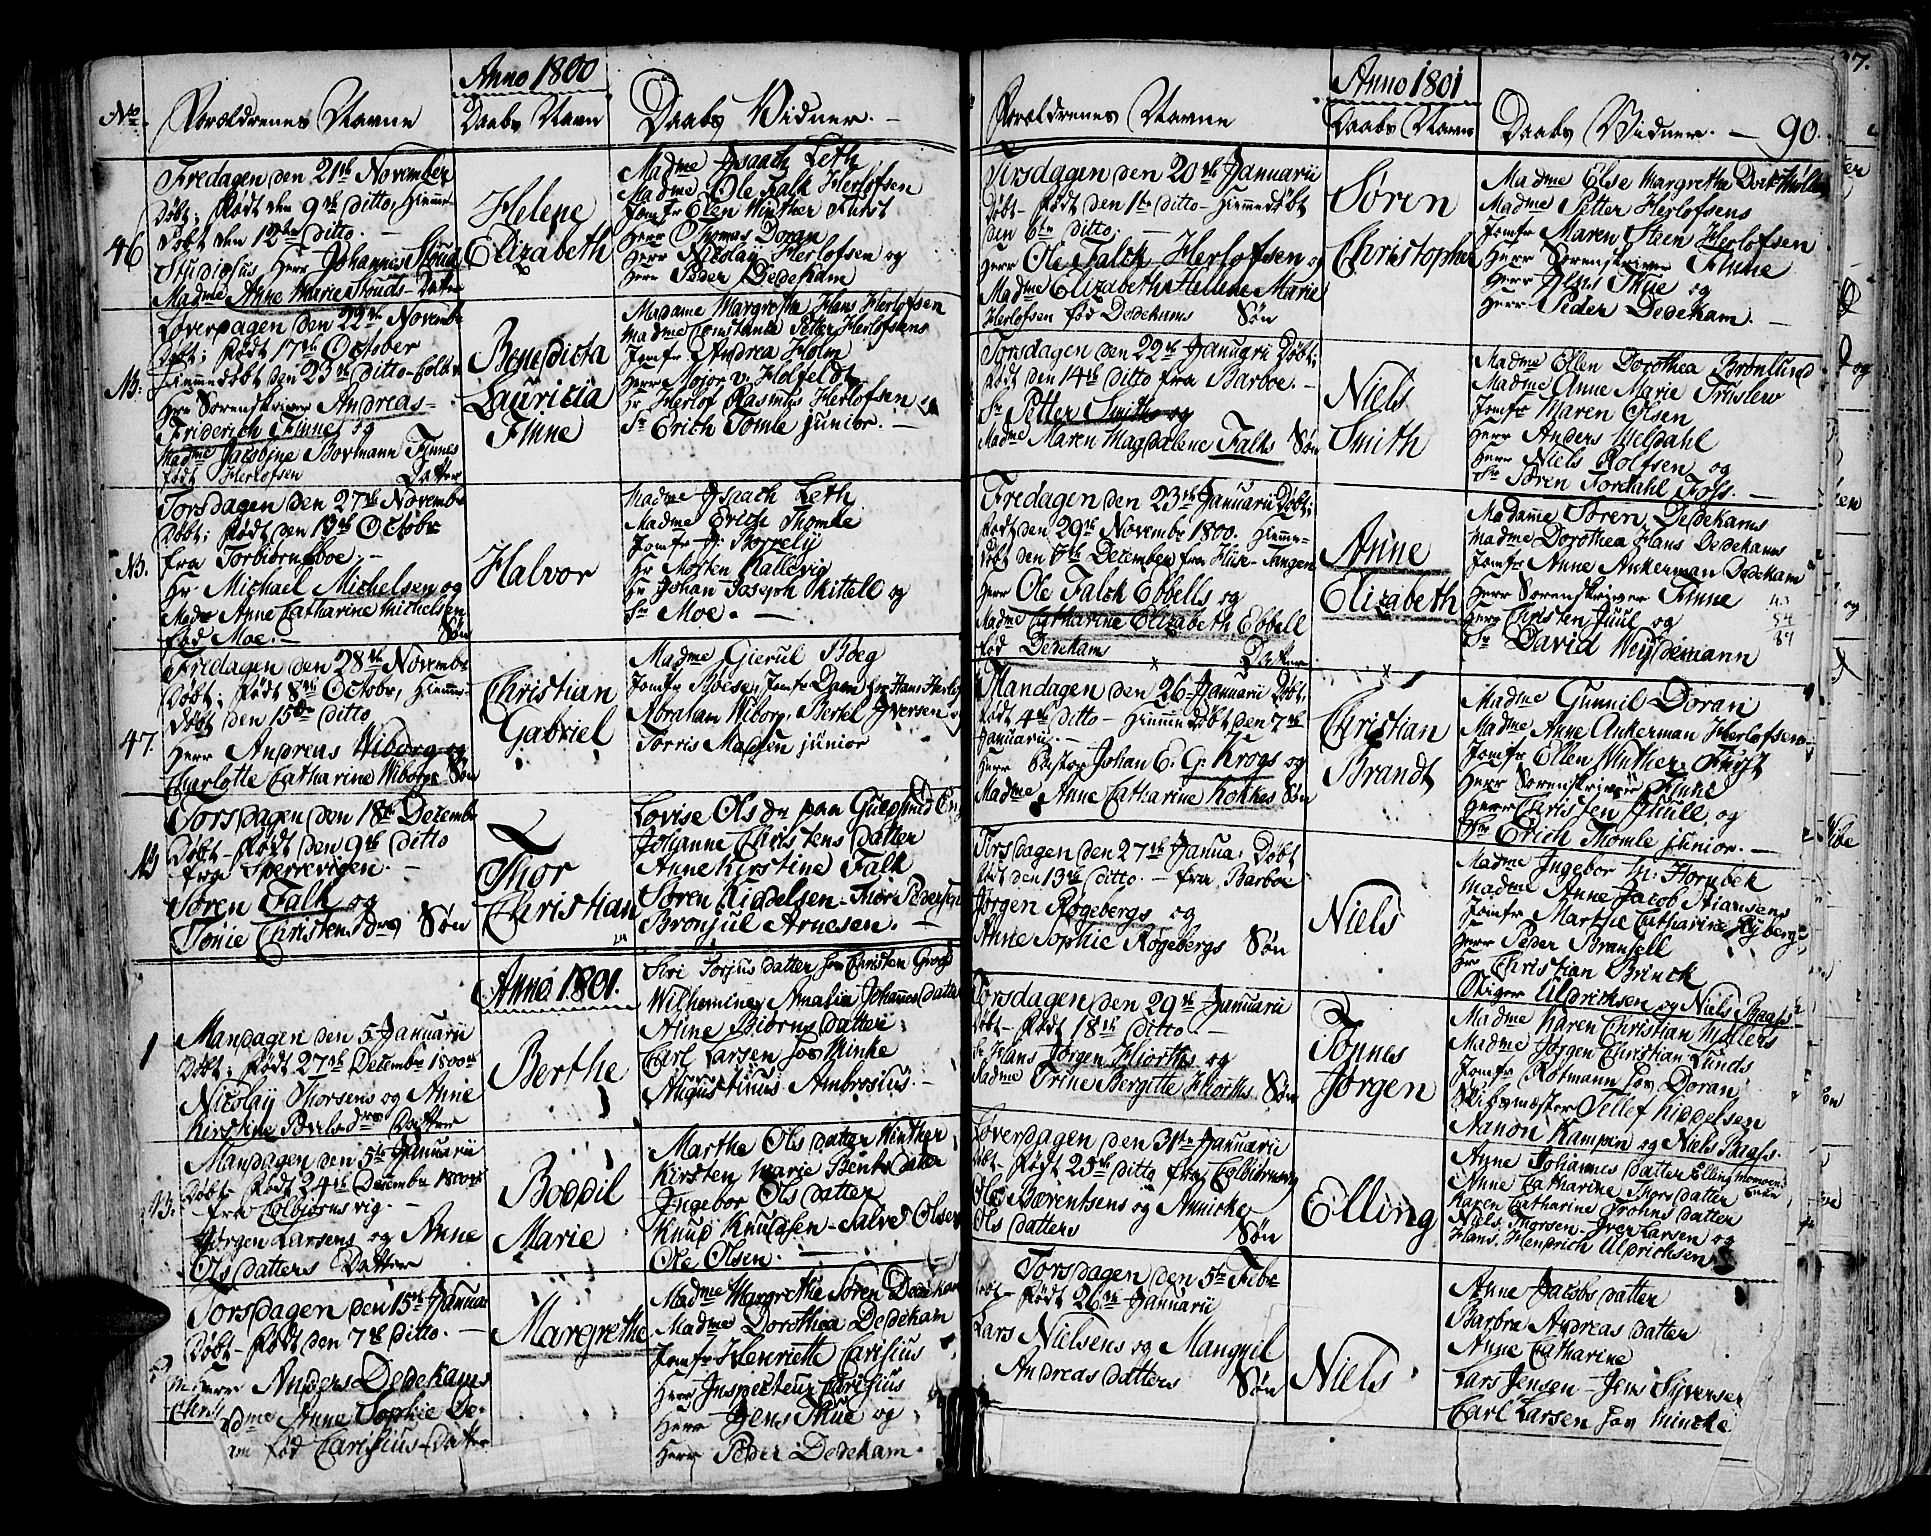 Anno 1800
No. Forældrenes Navne Daabs Navn Daabs Vidner. —
46
Fredagen den 21de November
Døbt; Født den 9de ditto, Hiemme-
Døbt den 12te ditto. —
Studiosus Herr Johannes Stoud
Madme Anne Marie Stouds - Datter
Helene
Elizabeth
Madme Isaach Leth
Madme Ole Falk Herlofsen
Jomfr Elen Winther Furst
Herr Thomas Doran
Herr Nicolay Herlofsen og
Herr Peder Dedekam
N.
Løverdagen den 22de Novembr
Døbt; Født 17de October
Hiemmedøbt den 23de ditto
Hrr Sorenskriver Andreas
Friderich Finne og
Madme Jacobine Bormann Finnes
født Herlofsen Datter
Benedicta
Lauricia
Finne
Madame Margretha Hans Herlofsen
Madme Constance Petter Herlofsens
Jomfr Andrea Holm
Herr Major v. Holfeldt
Hr Herlof Rasmus Herlofsen
Sr Erich Tomle junior. —
N.
Torsdagen den 27de Novembr
Døbt; Født den 19de Octobr
fra Torbiørnsboe. —
Hr Michael Michelsen og
Madme Anne Catharine Michelsen
fød Moe. — Søn
Halvor
Madme Isaach Leth
Madme Erich Thomle
Jomfr Borrely
Hr Morten Kallevig
Hr Johan Joseph Kittell og
Sr Moe. —
47.
Fredagen den 28de Novembr
Døbt; Født 8de Octobr, Hiemme-
Døbt den 15de ditto
Herr Andreas Wiborg og
Charlotte Catharine Wiborgs Søn
Christian
Gabriel
Madme Gierul Boeg
Jomfr Boese, Jomfr Dam Hr Hans Herlofs
Abraham Wiborg, Bertel Iversen
Torris Madsen junior
N
Torsdagen den 18de Decembr
Døbt - Født den 9de ditto
fra Sperrevigen. —
Søren Falk og
Tonie Christensdrs Søn
Thor
Christian
Lovise Olsdr paa Guldsmed Eng
Johanne Christensdatter
Anne Kirstine Falk
Søren Kiddelsen - Thore Pedersen
Bronjul Arnesen. —
Anno 1801.
1
Mandagen den 5 Januarii
Døbt; Født 27de Decembr 1800
Nicolay Thorsens og Anne
Kirstine Povelsdrs Datter
Berthe
Siri Torjusdatter hos Christen Groos
Wilhemine Amalia Johannesdatter
Anne Biørnsdatter
Carl Larsen hos Minke
Augustinus Ambrosius. —
N.
Mandagen den 5te Januarii
Døbt - Født 24de Decembr 1800
fra Colbjørnsvig. —
Jørgen Larsens og Anne
Olsdatters Datter
Boddil
Marie
Marthe Olsdatter Winther
Kirsten Marie Bentsdatter
Ingebor Olsdatter
Knud Knudsen - Salve Olsen
Ole Olsen. —
Torsdagen den 15de Januar
Døbt - Født den 7de ditto. —
Herr Anders Dedekams
Madme Anne Sophie De-
fød Carisius - Datter
Margrethe
Madme Margrethe Søren Dedekam
Madme Dorothea Dedekam
Jomfr Henriette Carisius
Herr Inspecteur Carisius
Herr Jens Thue og
Herr Peder Dedekam.
Anno 1801
Forældrenes Navne Daabs Navn Daabs Vidner. — 90.
Tirsdagen den 20de Januarii
Døbt - Født den 1te ditto - Hiemmedøbt
den 6te ditto. —
Herr Ole Falck Herlofsen og
Madme Elizabeth Hellene Marie
Herlofsen fød Dedekams Søn
Søren
Christopher
Madme Else Margrethe
Madme Petter Herlofsens
Jomfr Maren Steen Herlofsen
Herr Sorenskriver Finne
Herr Jens Thue og
Herr Peder Dedekam. —
Torsdagen den 22de Januarii Døbt;
Født den 14de ditto fra Barboe. —
Sr Petter Smiths og
Madme Maren Magdalene Falks Søn
Niels
Smith
Madme Ellen Dorothea Brønlund
Madme Anne Marie Truslew
Jomfr Maren Olsen
Herr Anders Meldahl
Herr Niels Rolfsen og
Sr Søren Fordahl Foss. —
Fredagen den 23de Januarii Døbt;
Født den 29de Novembr 1800. Hiemme-
døbt den 6te December fra Huse-Tangen
Herr Ole Falck Ebbells og
Madme Catharine Elizabeth Ebbell
fød Dedekams Datter
Anne
Elizabeth
Madame Søren Dedekams
Madme Dorothea Hans Dedekams
Jomfr Anne Ankerman Dedekam
Herr Sorenskriver Finne
Herr Christen Juul og
Sr David Weydemann
Mandagen den 26 Januarii Døbt
Født 4de ditto - Hiemmedøbt den 7de
Januarii. —
Herr Pastor Johan E. G. Krogs og
Madme Anne Catharine Kokkes Søn
Christian
Brandt
Madme Gunnil Doran
Madme Anne Ankerman Herlofsen
Jomfr Ellen Winther Furst
Herr Sorenskriver Finne
Herr Christen Juull og
Sr Erich Thomle junior. —
Torsdagen den 27de Janua. Døbt
Født den 13de ditto. — fra Barboe
Jørgen Røgebergs og
Anne Sophie Røgebergs Søn
Niels
Madme Ingebor Hornbek
Madme Anne Jacob Stiansens
Jomfr Marthe Catharine Ryberg
Herr Peder Bransell
Hr Christian Brinck
Stiger Uldriksen og Niels Baass
Torsdagen den 29de Januarii
Døbt - Født 18de ditto —
Sr Hans Jørgen Hiorths og
Madme Trine Bergitte Hiorths Søn
Tønnes
Jørgen
Madme Karen Christian Møllers
Madme Jørgen Christian Lunds
Jomfr Rotmann hos Doran
Skibsmæster Tellef Kiddelsen
Nanon Kampin og Niels Baass.
Løverdagen den 31te Januarii
Døbt - Født 25de ditto fra Colbiørnsvig
Ole Bærentsens og Annicke
Olsdatters Søn
Elling
Anne Johannesdatter
Anne Catharine Thorsdatter
Karen Catharine Frohnsdatter
Niels Thorsen - Iver Larsen og
Hans Hendrich Uldrichsen
Torsdagen den 5te Febr
Døbt - Født 26de Januarii
Lars Nielsens og Mangnil
Andreasdatters Søn
Niels
Anne Jacobsdatter
Barbra Andreasdatter
Anne Catharine
Lars Jensen - Jens Syversen
Carl Larsen hos Mincke